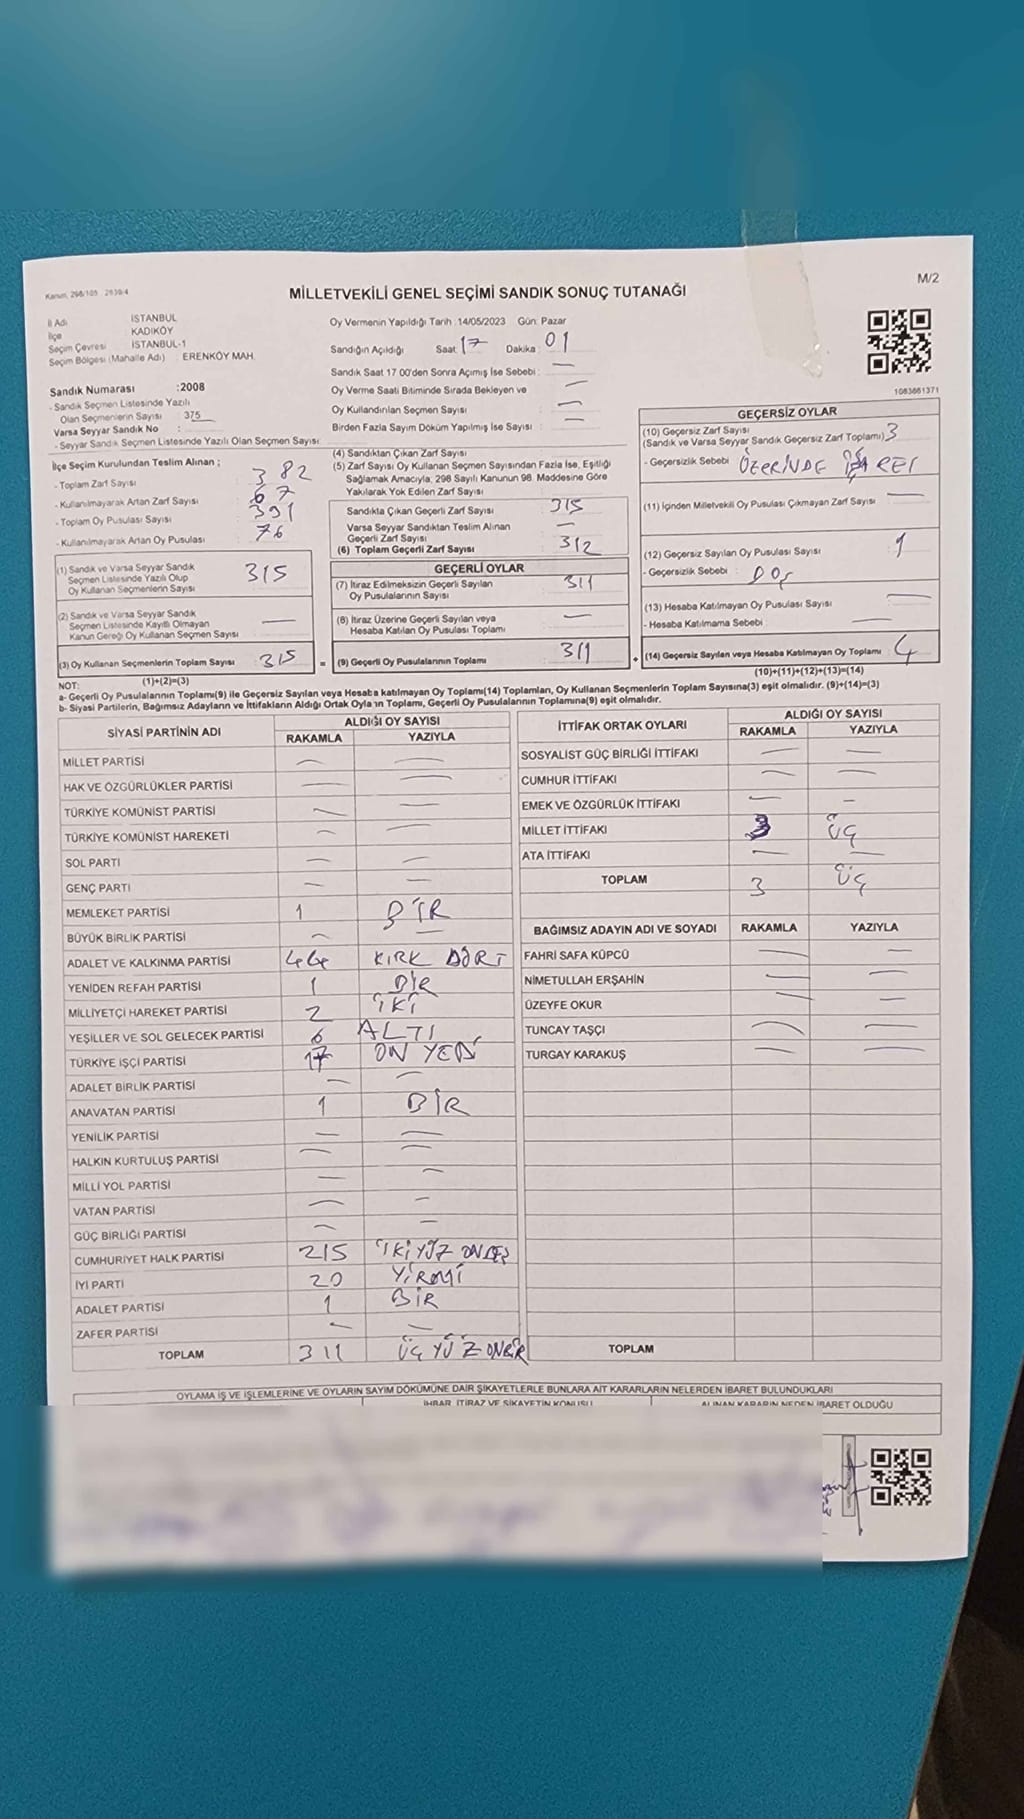 Kanun, 298/105 2839/4
MİLLETVEKİLİ GENEL SEÇİMİ SANDIK SONUÇ TUTANAĞI
M/2
İl Adı İSTANBUL
İlçe KADIKÖY
Seçim Çevresi İSTANBUL-1
Seçim Bölgesi (Mahalle Adı) ERENKÖY MAH.
Oy Vermenin Yapıldığı Tarih :14/05/2023 Gün: Pazar
Sandığın Açıldığı Saat: 17 Dakika: 01
Sandık Saat 17 00'den Sonra Açımış İse Sebebi : —
Oy Verme Saati Bitiminde Sırada Bekleyen ve —
Oy Kullandırılan Seçmen Sayısı —
Birden Fazla Sayım Döküm Yapılmış İse Sayısı : —
1083661371
Sandık Numarası :2008
- Sandık Seçmen Listesinde Yazılı
Olan Seçmenlerin Sayısı : 375
Varsa Seyyar Sandık No :
- Seyyar Sandık Seçmen Listesinde Yazılı Olan Seçmen Sayısı:
İlçe Seçim Kurulundan Teslim Alınan ;
- Toplam Zarf Sayısı 382
- Kullanılmayarak Artan Zarf Sayısı 67
- Toplam Oy Pusulası Sayısı 391
- Kullanılmayarak Artan Oy Pusulası 76
(1) Sandık ve Varsa Seyyar Sandık
Seçmen Listesinde Yazılı Olup
Oy Kullanan Seçmenlerin Sayısı 315
(2) Sandık ve Varsa Seyyar Sandık
Seçmen Listesinde Kayıtlı Olmayan
Kanun Gereği Oy Kullanan Seçmen Sayısı —
(3) Oy Kullanan Seçmenlerin Toplam Sayısı 315 =
(1)+(2)=(3)
(4) Sandıktan Çıkan Zarf Sayısı
(5) Zarf Sayısı Oy Kullanan Seçmen Sayısından Fazla İse, Eşitliği
Sağlamak Amacıyla, 298 Sayılı Kanunun 98. Maddesine Göre
Yakılarak Yok Edilen Zarf Sayısı
Sandıkta Çıkan Geçerli Zarf Sayısı 315
Varsa Seyyar Sandıktan Teslim Alınan
Geçerli Zarf Sayısı —
(6) Toplam Geçerli Zarf Sayısı 312
GEÇERLİ OYLAR
(7) İtiraz Edilmeksizin Geçerli Sayılan
Oy Pusulalarının Sayısı 311
(8) İtiraz Üzerine Geçerli Sayılan veya
Hesaba Katılan Oy Pusulası Toplamı —
(9) Geçerli Oy Pusulalarının Toplamı 311 +
GEÇERSİZ OYLAR
(10) Geçersiz Zarf Sayısı
(Sandık ve Varsa Seyyar Sandık Geçersiz Zarf Toplamı) 3
- Geçersizlik Sebebi ÜZERİNDE İŞARET
(11) İçinden Milletvekili Oy Pusulası Çıkmayan Zarf Sayısı —
(12) Geçersiz Sayılan Oy Pusulası Sayısı 1
- Geçersizlik Sebebi : BOŞ
(13) Hesaba Katılmayan Oy Pusulası Sayısı —
- Hesaba Katılmama Sebebi : —
(14) Geçersiz Sayılan veya Hesaba Katılmayan Oy Toplamı 4
(10)+(11)+(12)+(13)=(14)
NOT:
a- Geçerli Oy Pusulalarının Toplamı(9) ile Geçersiz Sayılan veya Hesaba katılmayan Oy Toplamı(14) Toplamları, Oy Kullanan Seçmenlerin Toplam Sayısına(3) eşit olmalıdır. (9)+(14)=(3)
b- Siyasi Partilerin, Bağımsız Adayların ve İttifakların Aldığı Ortak Oyların Toplamı, Geçerli Oy Pusulalarının Toplamına(9) eşit olmalıdır.
SİYASİ PARTİNİN ADI ALDIĞI OY SAYISI
RAKAMLA YAZIYLA
MİLLET PARTİSİ — —
HAK VE ÖZGÜRLÜKLER PARTİSİ — —
TÜRKİYE KOMÜNİST PARTİSİ — —
TÜRKİYE KOMÜNİST HAREKETİ — —
SOL PARTİ — —
GENÇ PARTİ — —
MEMLEKET PARTİSİ 1 BİR
BÜYÜK BİRLİK PARTİSİ — —
ADALET VE KALKINMA PARTİSİ 44 KIRK DÖRT
YENİDEN REFAH PARTİSİ 1 BİR
MİLLİYETÇİ HAREKET PARTİSİ 2 İKİ
YEŞİLLER VE SOL GELECEK PARTİSİ 6 ALTI
TÜRKİYE İŞÇİ PARTİSİ 17 ON YEDİ
ADALET BİRLİK PARTİSİ — —
ANAVATAN PARTİSİ 1 BİR
YENİLİK PARTİSİ — —
HALKIN KURTULUŞ PARTİSİ — —
MİLLİ YOL PARTİSİ — —
VATAN PARTİSİ — —
GÜÇ BİRLİĞİ PARTİSİ — —
CUMHURİYET HALK PARTİSİ 215 İKİ YÜZ ONBEŞ
İYİ PARTİ 20 YİRMİ
ADALET PARTİSİ 1 BİR
ZAFER PARTİSİ — —
TOPLAM 311 ÜÇ YÜZ ONBİR
İTTİFAK ORTAK OYLARI ALDIĞI OY SAYISI
RAKAMLA YAZIYLA
SOSYALİST GÜÇ BİRLİĞİ İTTİFAKI — —
CUMHUR İTTİFAKI — —
EMEK VE ÖZGÜRLÜK İTTİFAKI — —
MİLLET İTTİFAKI 3 ÜÇ
ATA İTTİFAKI — —
TOPLAM 3 ÜÇ
BAĞIMSIZ ADAYIN ADI VE SOYADI RAKAMLA YAZIYLA
FAHRİ SAFA KÜPCÜ — —
NİMETULLAH ERŞAHİN — —
ÜZEYFE OKUR — —
TUNCAY TAŞÇI — —
TURGAY KARAKUŞ — —
TOPLAM
OYLAMA İŞ VE İŞLEMLERİNE VE OYLARIN SAYIM DÖKÜMÜNE DAİR ŞİKAYETLERLE BUNLARA AİT KARARLARIN NELERDEN İBARET BULUNDUKLARI
İHBAR, İTİRAZ VE ŞİKAYETİN KONUSU ALINAN KARARIN NEDEN İBARET OLDUĞU